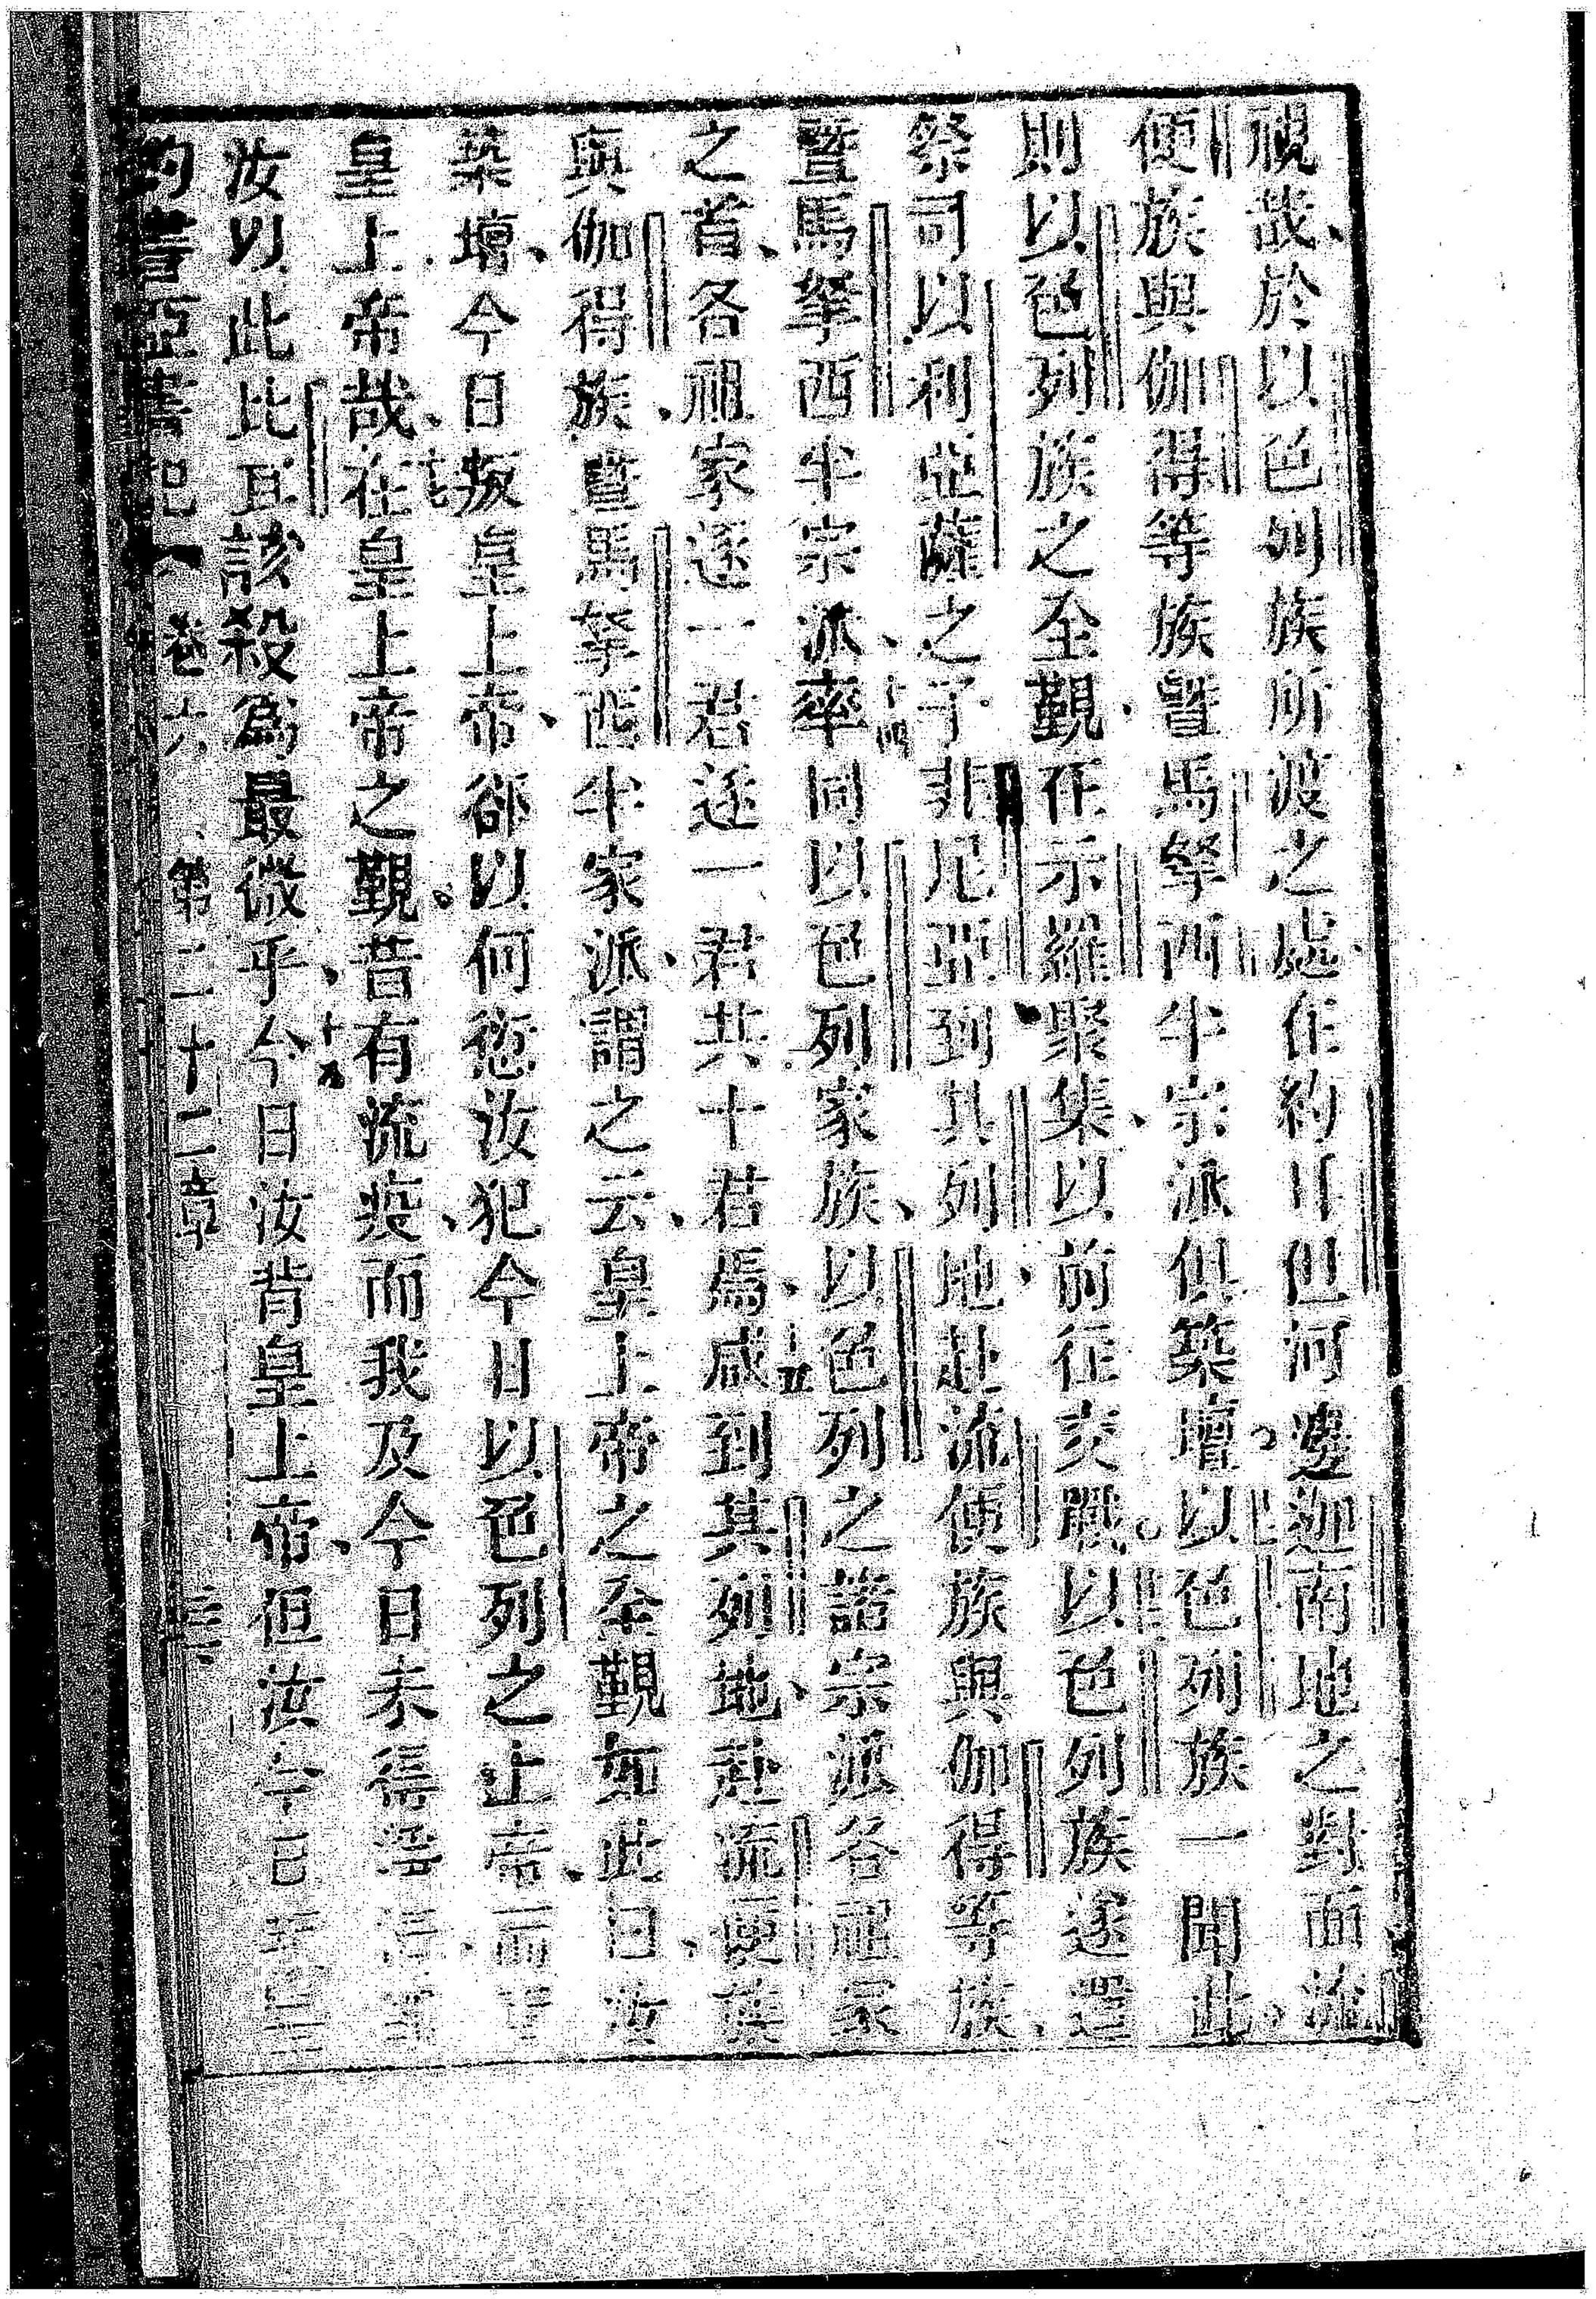 視哉、於以色列族所渡之處在約耳但河邊迦南地之對面流
便族與伽得等族暨馬拏西半宗派俱築壇。以色列族一聞此、
則以色列族之至覲在示羅聚集、以前往交戰。以色列族遂遣
祭司以利亞薩之子非尼亞到其列地、赴流便族與伽得等族、
暨馬拏西半宗派、十四率同以色列家族、以色列之諸宗派各祖家
之首、各祖家逐一君逐一君共十君焉、十五咸到其列地、赴流便族
與伽得族、暨馬拏西半家派、謂之云、皇上帝之至覲如此曰、汝
築壇、今日叛皇上帝、卻以何愆汝犯今日以色列之上帝、而
皇上帝哉、在皇上帝之覲。昔有流疫、而我及今日未得潔
汝以此比耳該殺為最微乎、十八今日汝背皇上帝、但汝今日
約書亞書記 卷六 第二十二章